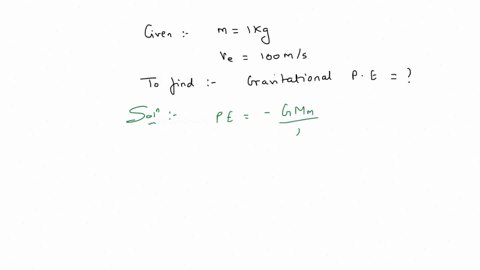 Given :- m = 1 Kg
ve = 100 m/s
To find :- Gravitational P.E = ?
Soln :- PE = - GMm